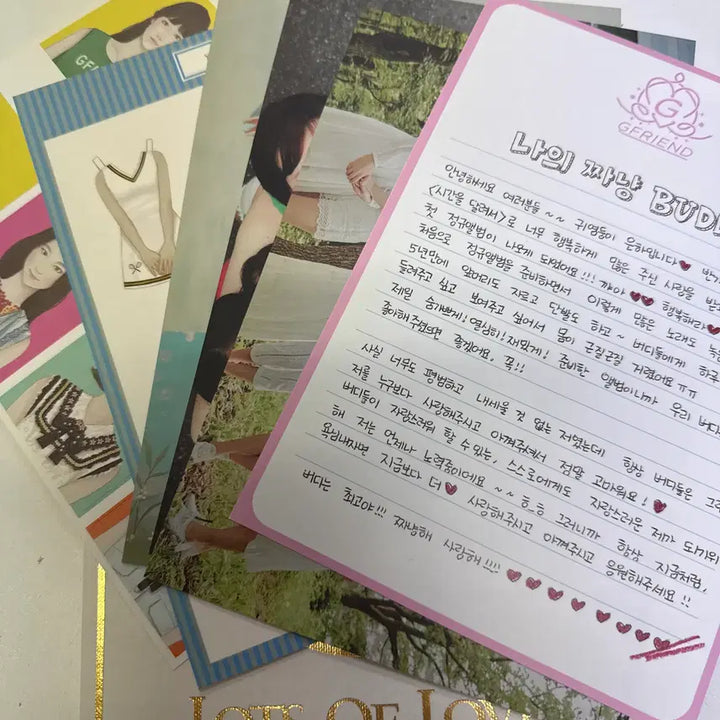 GF
GFRIEND
나의 짜냥 BUD
안녕하세요 여러분들 ~~ 귀염둥이 은하입니다♥ 반
<시간을 달려서>로 너무 행복하게 많은 주신 사랑을 받
첫 정규앨범이 나오게 되었어요!!! 꺄아♥♥ 행복해라♥
처음으로 정규앨범을 준비하면서 이렇게 많은 노래도 녹
5년만에 앞머리도 자르고 단발도 하고~ 버디들에게 하루
들려주고 싶고 보여주고 싶어서 몸이 근질근질 거렸어요ㅠㅠ
제일 숨가쁘게! 열심히! 재밌게! 준비한 앨범이니까 우리 버디
좋아해주셨으면 좋겠어요. 꼭!!
사실 너무도 평범하고 내세울 것 없는 저였는데 항상 버디들은 그
저를 누구보다 사랑해주시고 아껴주셔서 정말 고마워요! ♥
버디들이 자랑스러워 할 수 있는, 스스로에게도 자랑스러운 제가 되기위
해 저는 언제나 노력중이에요 ~~ ㅎ_ㅎ 그러니까 항상 지금처럼,
욕심내자면 지금보다 더♥ 사랑해주시고 아껴주시고 응원해주세요!!
버디는 최고야!!! 짜냥해 사랑해!!!! ♥♥♥♥♥♥♥♥
GFRIEND
LOTS OF LOV